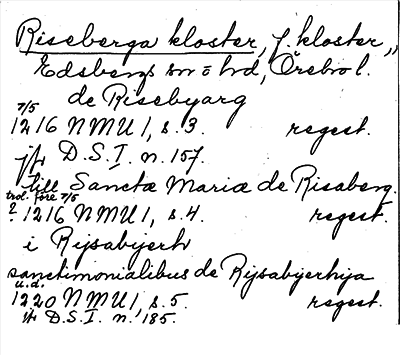 Riseberga kloster, f. kloster,,
Edsbergs sn o hd, Örebro l.
de Risebyarg
7/5
1216 NMU 1, s. 3. regest.
jfr D.S. I. n. 157.
till Sanctæ Mariæ de Risaberg.
trol. före 7/5
? 1216 NMU 1, s. 4. regest.
i Rijsabyerh
sanctimonialibus de Rijsabyerhija
u.d.
1220 NMU 1, s. 5. regest.
jfr D.S. I. n. 185.